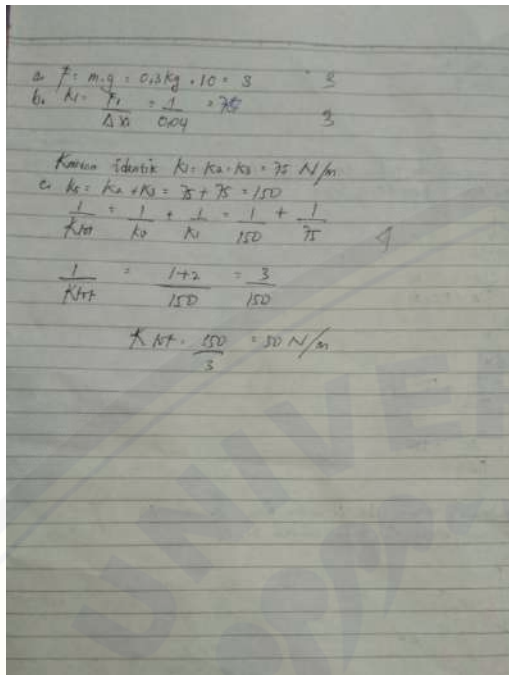 a. F = m.g = 0,3 kg . 10 = 3 2
b. k1 = F1 / Δx1 = 1 / 0,04 = 75 3
Karena identik k1 = k2 = k3 = 75 N/m
c. ks = k2 + k3 = 75 + 75 = 150
1/Ktot = 1/kp + 1/k1 = 1/150 + 1/75 4
1/Ktot = 1+2/150 = 3/150
K tot = 150/3 = 50 N/m
UNIVE